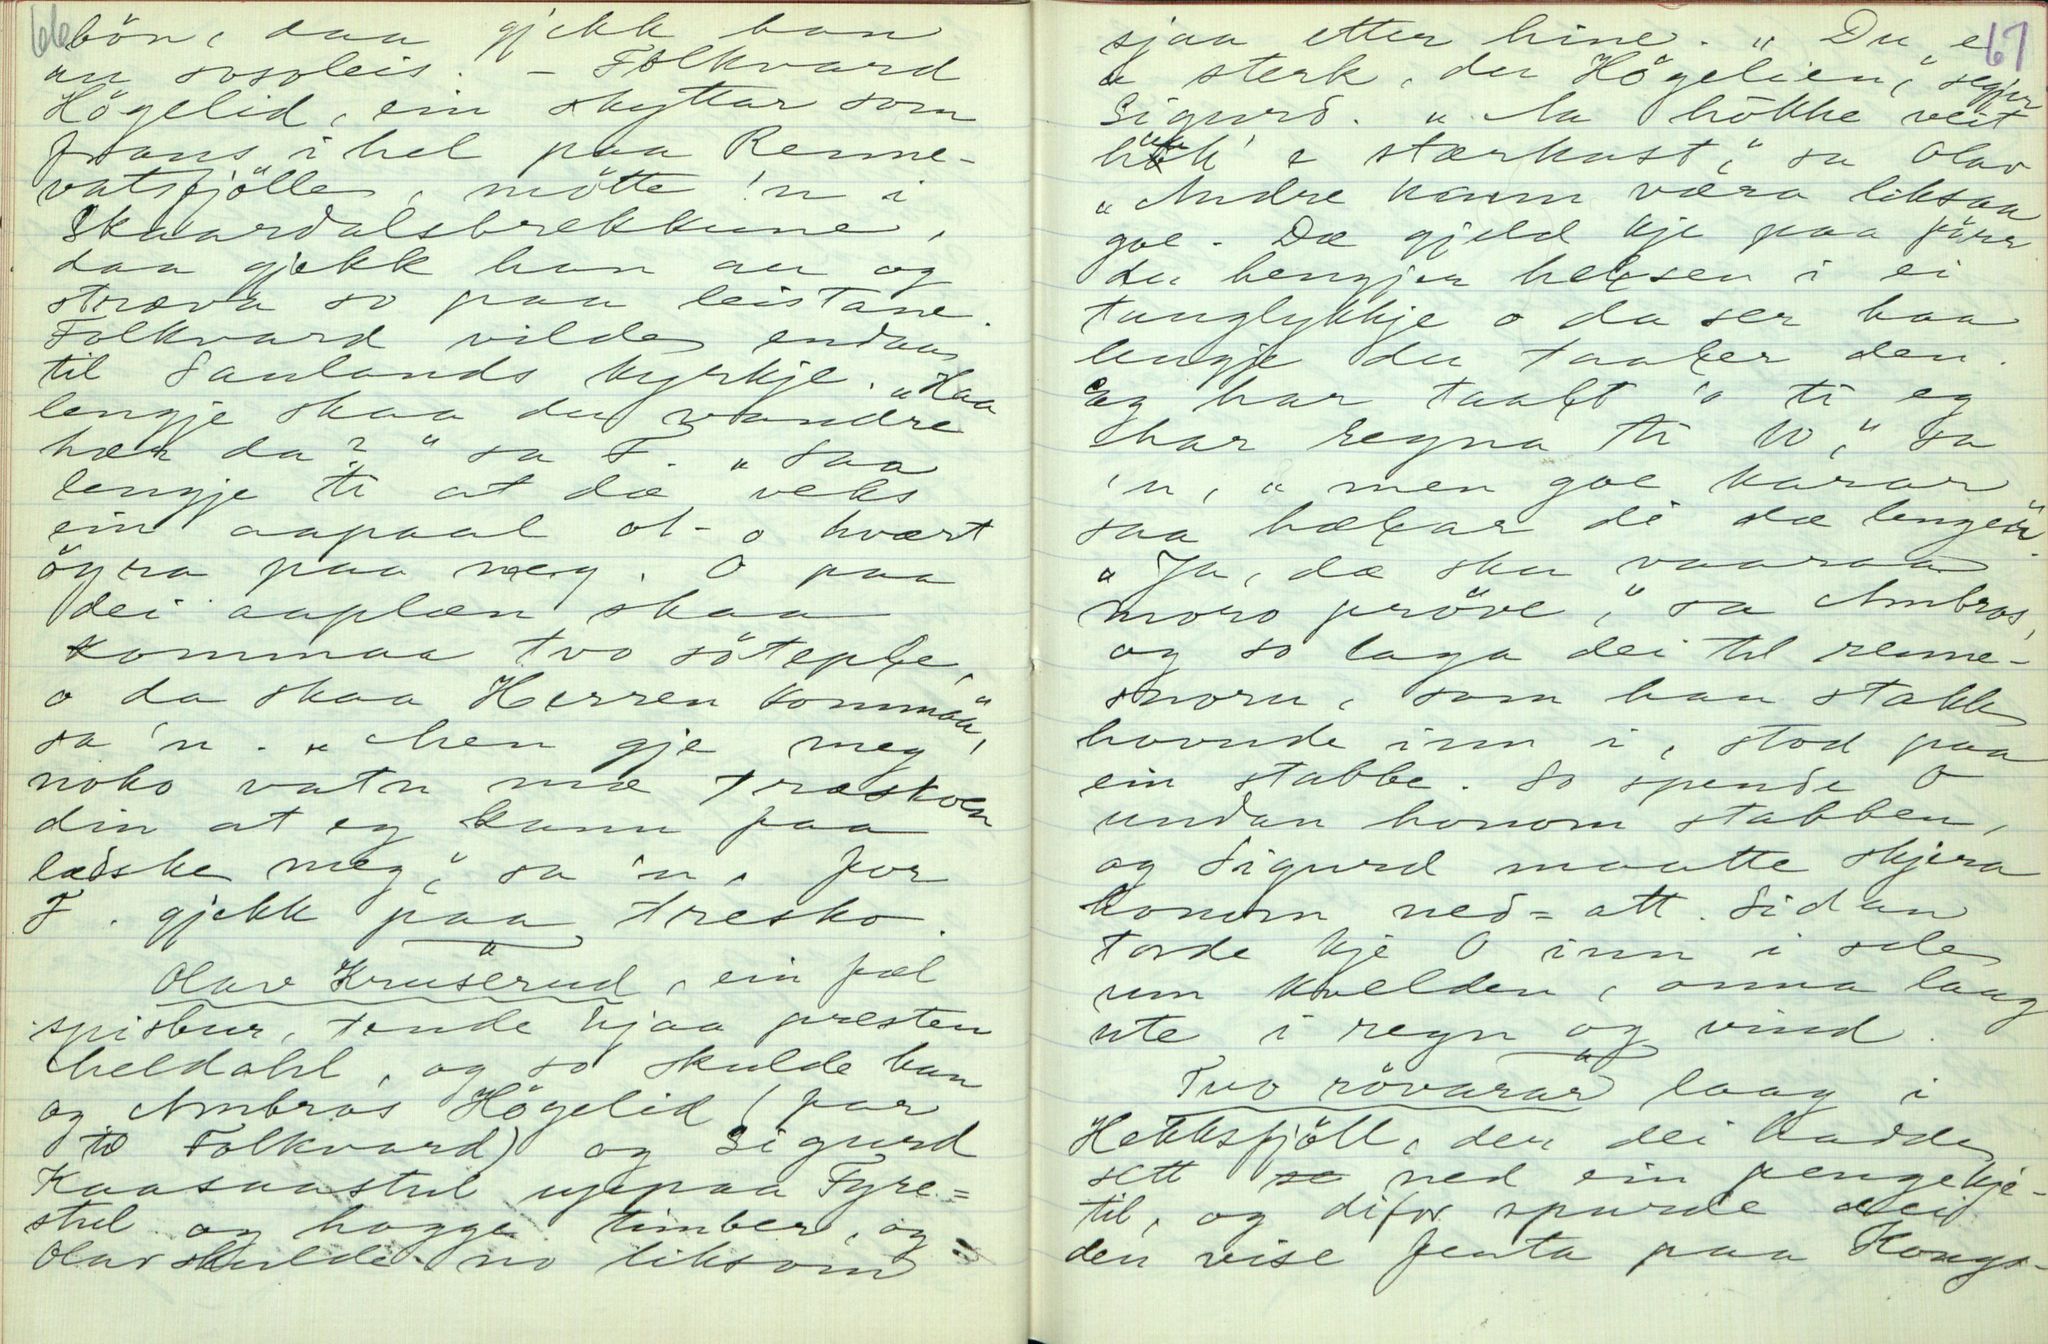 66
bön, daa gjekk han
au sosoleis. – Folkvard
Högelid, ein skyttar som
fraus i hel paa Renne-
vatsfjölle, mötte 'n i
Skaardalsbrekkune,
daa gjekk han au og
stræva so paa leistane.
Folkvard vilde endaa
til Saulands kyrkje. „Haa
lengje skaa du vandre
hær da?" sa F. „Saa
lengje ti at dæ veks
ein aapaal ot- o hvært
öyra paa meg. O paa
dei aaplæn skaa
kommaa tvo söteple,
o da skaa Herren kommaa,"
sa 'n. „Men gje meg
noko vatn mæ træskoen
din at eg kann faa
ledske meg," sa 'n, for
F. gjekk paa tresko.
Olav Kruserud, ein fæl
spisbur, tende hjaa presten
Meldahl, og so skulde han
og Ambros Högelid (far
to Folkvard) og Sigurd
Kaasastul uppaa Fyre=
stul og hogge timber, og
Olav skulde no liksom
67
sjaa etter hine. „Du e
sterk, du Högelien," segjer
Sigurd. „Aa hökke veit
höken e stærkast," sa Olav
„Andre kann væra liksaa
goe. Dæ gjeld kje paa förr
du hengjer helsen i ei
tauglykkje o da ser haa
lengje du taaler den.
Eg har taalt 'o ti eg
har regna ti 10," sa
'n, „men goe karar
saa hælar di dæ lenger."
„Ja, dæ ska vaaraa
moro pröve," sa Ambros,
og so laga dei til renne-
snoru, som han stakk
hovude inn i, stod paa
ein stabbe. So spende O
undan honom stabben,
og Sigurd maatte skjera
honom ned=att. Sidan
torde kje O inn i sele
um kvelden, onna laag
ute i regn og vind.
Tvo rövarar laag i
Hekksfjöll, der dei hadde
sett ned ein pengekje-
til, og difor spurde dei
den vise jenta paa Kongs-